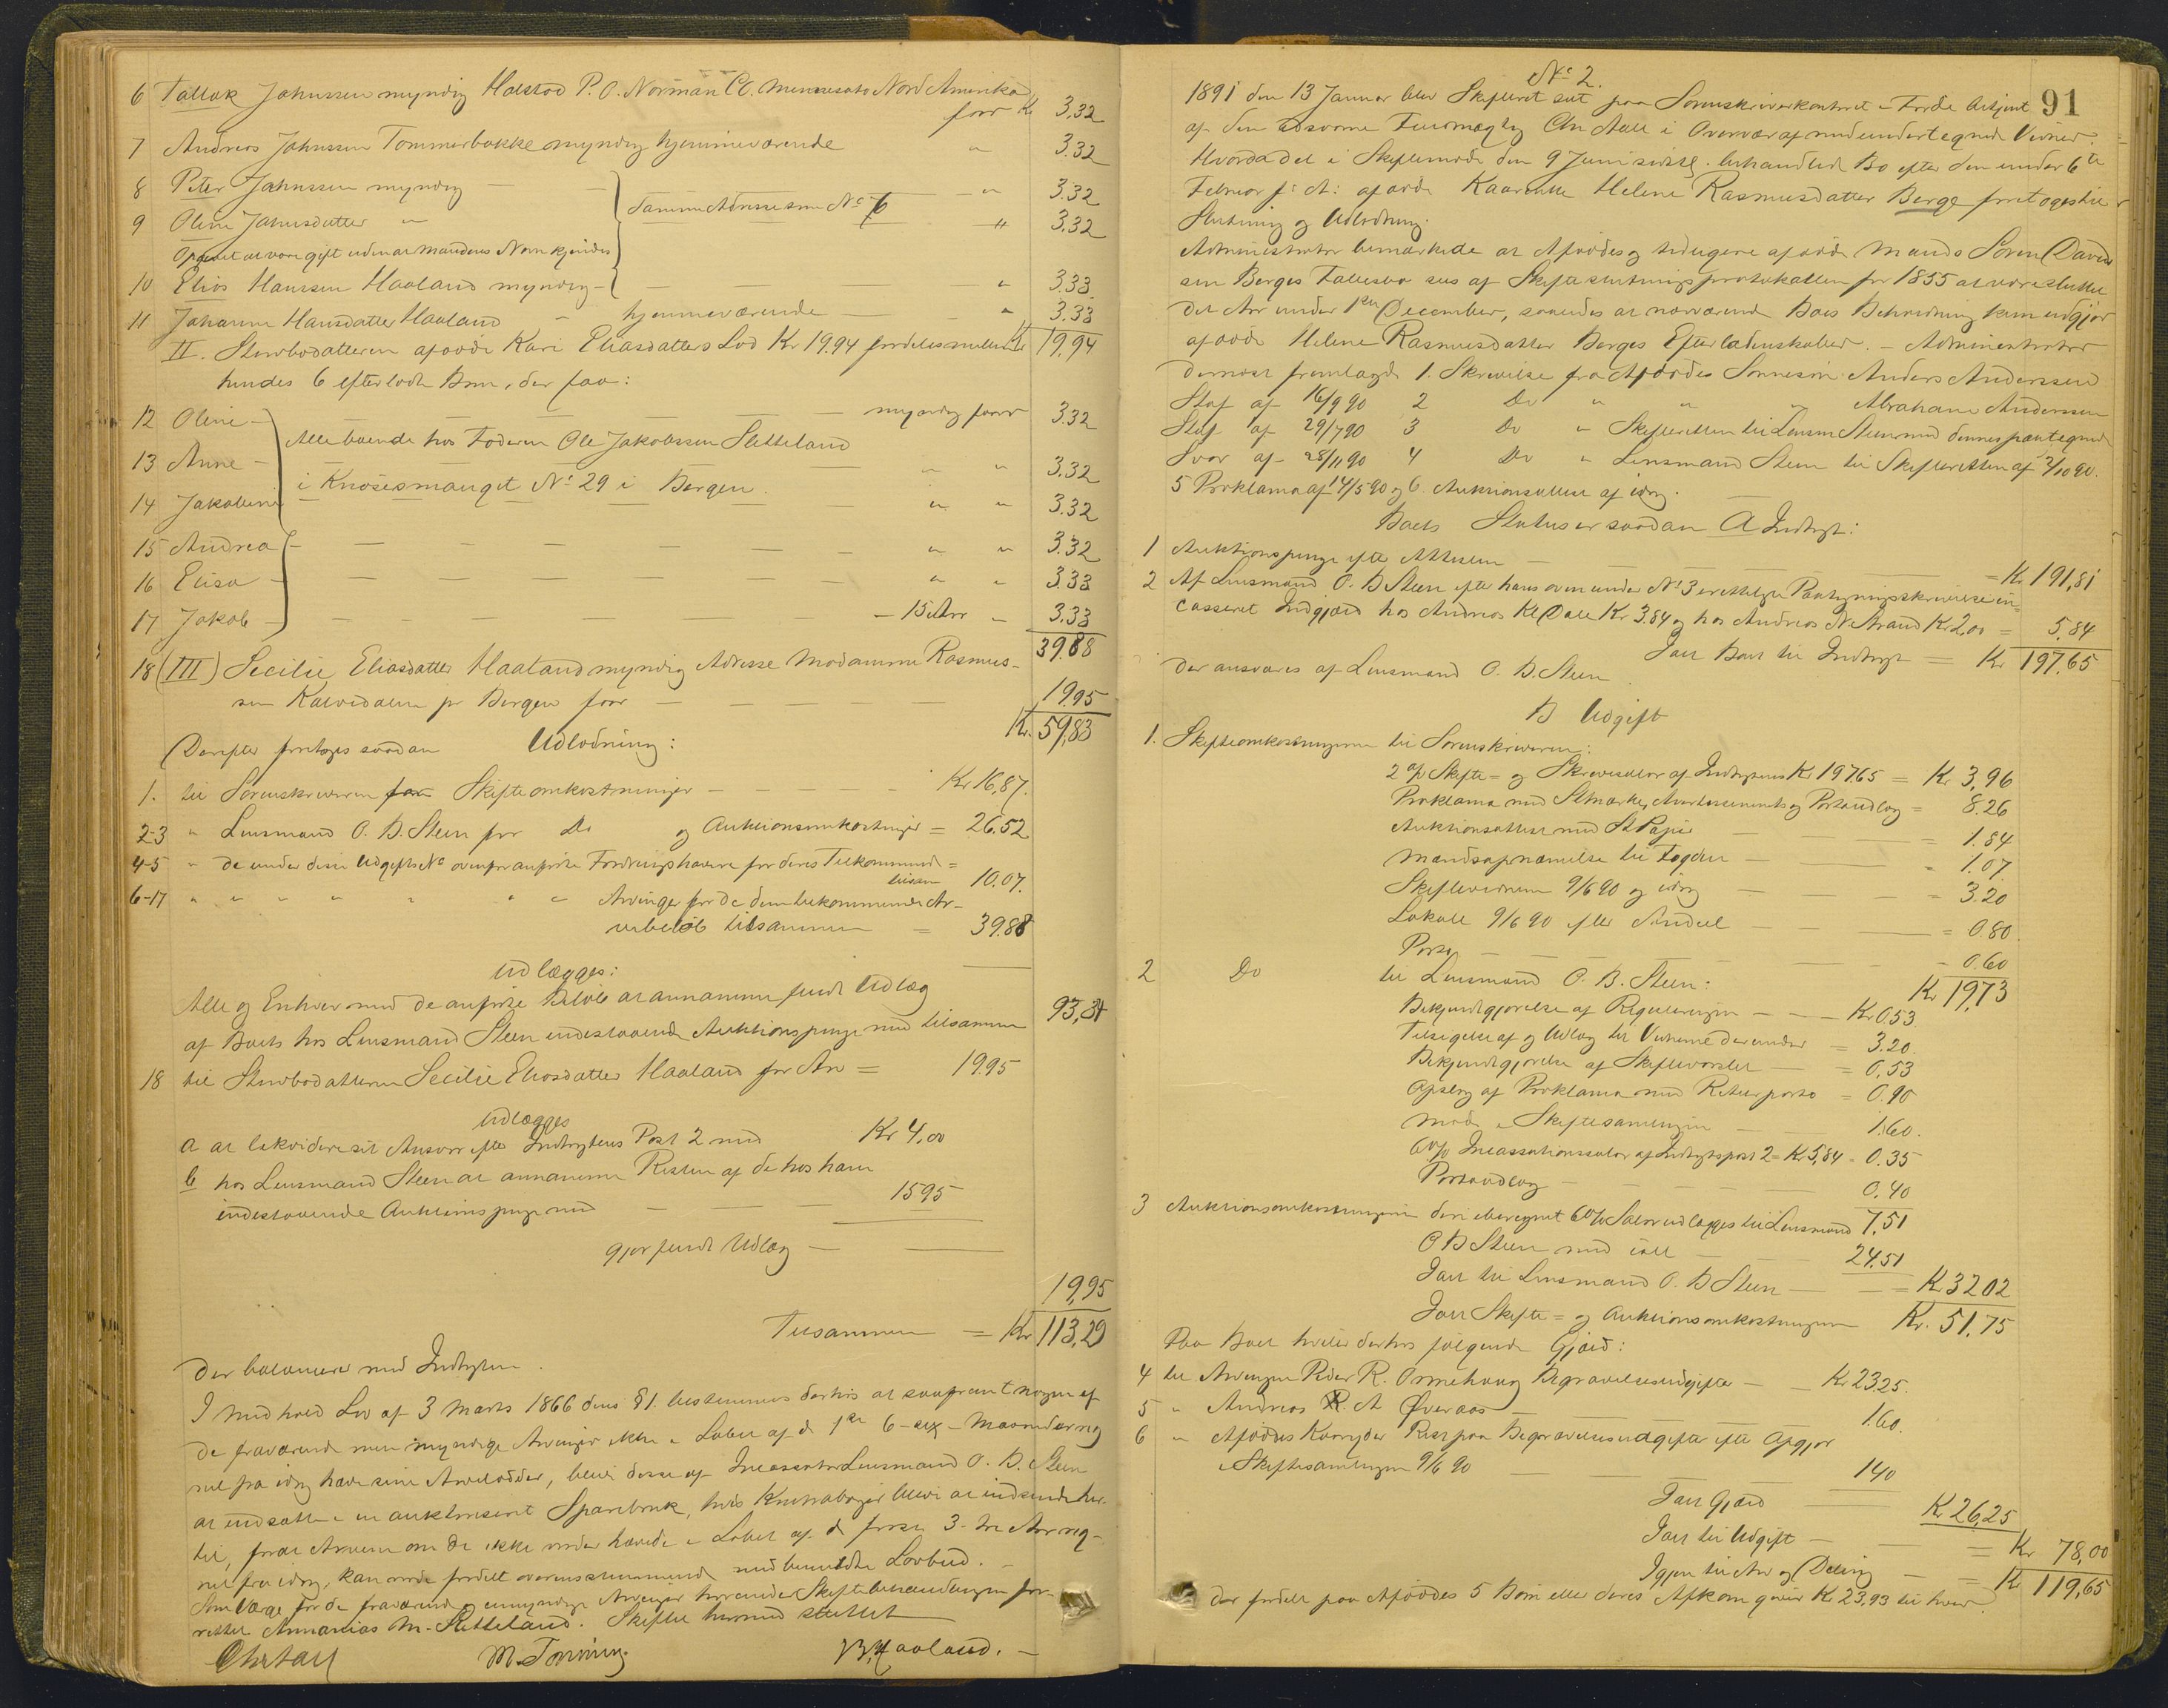 6 Tallak Johnssen myndig Halstad P.O. Norman Co. Minnesota Nord Amerika
faar Kr 3.32
7 Andreas Johnssen Tommerbakke myndig hjemmeværende " 3.32
8 Peter Johnssen myndig — " 3.32
Samme Adresse som No 6
9 Oline Johnsdatter " " 3.32
Opgivet at være gift uden at Mandens Navn kjendes
10 Elias Hanssen Haaland myndig — " 3.33
11 Johanne Hansdatter Haaland " hjemmeværende — " 3.33
Kr 19,94
II. Stervbodatteren afdøde Kari Eliasdatters Lod Kr 19.94 fordeles mellem
hendes 6 efterladte Børn, der faa:
12 Oline — myndig faar 3.32
Alle boende hos Faderen Ole Jakobssen Sletteland
13 Anne — " " 3.32
i Knøsesmauget No 29 i Bergen.
14 Jakobine " " 3.32
15 Andrea — " " 3.32
16 Elisa — " " 3.33
17 Jakob — 15 Aar " 3.33
39.88
18 (III) Secilie Eliasdatter Haaland myndig Adresse Madamme Rasmus-
sen Kalvedalen pr Bergen faar — 19.95
Kr. 59,83
Derefter foretoges saadan Udlodning:
1. til Sorenskriveren for Skifteomkostninger — Kr 16,87.
2-3 " Lensmand O. B. Steen for Do og Auktionsomkostninger = 26.52
4-5 " de under disse Udgifts No ovenfor anførte Fordringshavere for deres Tilkommende =
tilsam 10.07.
6-17 " " " " " " " Arvinger for de dem tilkommende Ar-
vebeløb tilsammen = 39.88
Udlægges:
Alle og Enhver med de anførte Beløb at annamme fuldt Udlæg
af Boets hos Lensmand Steen indestaaende Auktionspenge med tilsammen 93,34
18 til Stervbodatteren Secilie Eliasdatter Haaland for Arv = 19.95
Udlægges
a at likvidere sit Ansvar efter Indtægtens Post 2 med Kr 4,00
b hos Lensmand Steen at annamme Resten af de hos ham
indestaaende Auktionspenge med — 15.95
gjør fuldt Udlæg —
19,95
Tilsammen = Kr 113,29
der balancerer med Indtægten.
I Medhold Lov af 3 Marts 1866 dens § 1. bestemmes derhos at saafremt nogen af
de fraværende men myndige Arvinger ikke i Løbet af de 1ste 6 - sex - Maaneder reg-
net fra idag hæve sine Arvelodder, blive disse af Incassator Lensmand O. B. Steen
at indsætte i en auktoriseret Sparebank, hvis Kontrabøger blive at indsende her-
til, forat Arven om de ikke vorder hævede i Løbet af de første 3 - tre Aar reg-
net fra idag, kan vorde fordelt overensstemmende med bemeldte Lovbud. —
Som Værge for de fraværende og umyndige Arvinger tiltraadte Skiftebehandlingen for-
rettet Annanias M. Sletteland. Skiftet hermed sluttet
M. Tonning. B. Haaland. —
No 2. 91
1891 den 13 Januar blev Skifteret sat paa Sorenskriverkontoret i Førde betjent
af den edsvorne Fuldmægtig Chr Aall i Overvær af medundertegnede Vidner.
Hvorda det i Skiftemøde den 9 Juni sidstl. behandlede Bo efter den under 6te
Februar f: A: afdøde Kaarenke Helene Rasmusdatter Berge foretoges til
Slutning og Udlodning.
Administrator bemærkede at Afdødes og tidligere afdøde Mands Søren David-
sen Berges Fællesbo sees af Skifteslutningsprotokollen for 1855 at være sluttet
det Aar under 1ste December, saaledes at nærværende Boes Beholdning kun udgjør
afdøde Helene Rasmusdatter Berges Efterladenskaber. — Administrator
dernæst fremlagde 1. Skrivelse fra Afdødes Sønnesøn Anders Anderssen
Staf af 16/9 90 2 Do " " " Abraham Anderssen
Staf af 29/7 90 3 Do " Skifteretten til Lensm Steen med dennes paategnede
Svar af 28/11 90 4 Do " Lensmand Steen til Skifteretten af 2/10 90.
5 Proklama af 14/5 90 og 6 Auktionsattest af idag.
Boets Status er saadan A Indtægt:
1 Auktionspenge efter Attesten — Kr 191,81
2 Af Lensmand O. B Steen efter hans ovennævnte No 3 erettelagte Paategningsskrivelse in-
casseret Indgjæld hos Andreas Kl Dale Kr 3.84 og hos Andreas N Strand Kr 2,00 = 5,84
Jalt Boet til Indtægt = Kr 197,65
der ansvares af Lensmand O. B. Steen.
B Udgift
1. Skifteomkostningerne til Sorenskriveren:
2 % Skifte- og Skrivesalær af Indtægtens Kr 197.65 = Kr 3,96
Proklama med St.mærke, Avertissements og Portoudlæg = 8.26
Auktionsattest med St Papir — = 1.84
Mandsopnævnelse til Fogden — = 1.07
Skiftevidnerne 9/6 90 og idag — = 3.20
Lokale 9/6 90 efter Andeel — = 0.80
Porto — 0.60
Kr 19,73
2 Do til Lensmand O. B. Steen:
Bekjendtgjørelse af Registreringen — Kr 0.53
Tilsigelse af og Udlæg til Vidnerne derunder = 3.20.
Bekjendtgjørelse af Skiftevarslet — = 0,53
Opslag af Proklama med Returporto = 0.90
Møde i Skiftesamlingen — 1.60.
6 % Incassationssalær af Indtægtspost 2 = Kr 5,84 = 0.35
Portoudlæg — 0,40
7,51
3 Auktionsomkostningerne deri iberegnet 6 % Salær udlægges til Lensmand
O B Steen med ialt — 24.51
Jalt til Lensmand O. B Steen — = Kr 32 02
Jalt Skifte- og Auktionsomkostningerne Kr. 51,75
Paa Boet hviler derhos følgende Gjæld:
4 til Arvingen Peder R. Ormehaug Begravelsesudgifter — Kr 23.25.
5 " Andreas R. A Øveraas — 1.60.
6 " Afdødes Kaaryder Rest paa Begravelsesudgifter efter Opgjør
i Skiftesamlingen 9/6 90 — 140
Jalt Gjæld — Kr 26,25
Jalt til Udgift — = Kr 78,00
Igjen til Arv og Deling — = Kr 119,65
der fordelt paa Afdødes 5 Børn eller deres Afkom giver Kr 23,93 til hver